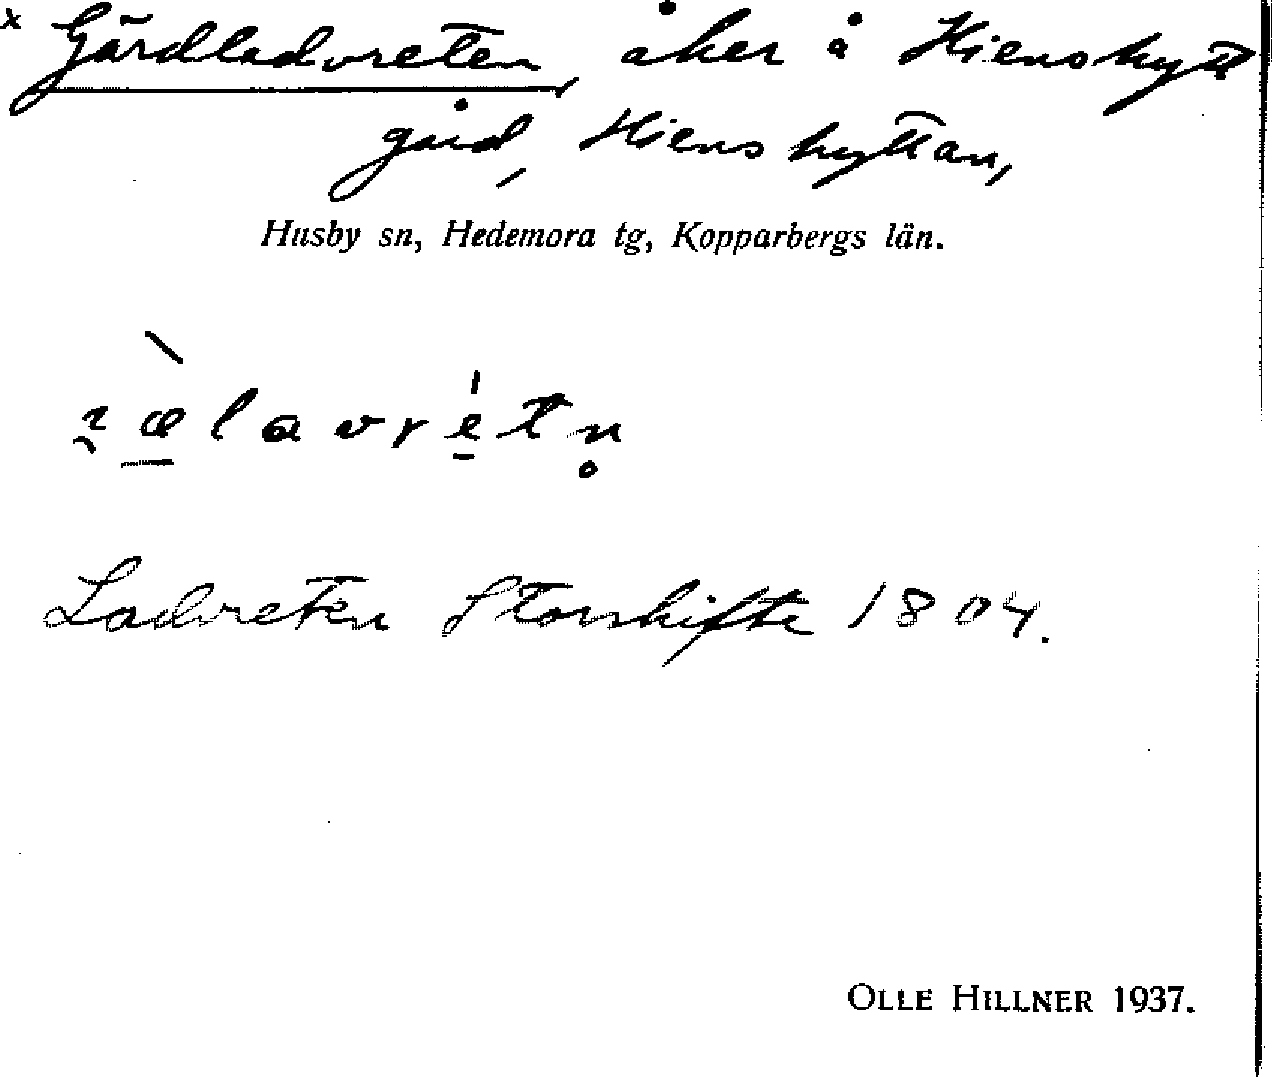 x Gärdladvreten, åker å Hienshytt
gård, Hienshyttan,
Husby sn, Hedemora tg, Kopparbergs län.
Ladvreten Storskifte 1804.
OLLE HILLNER 1937.